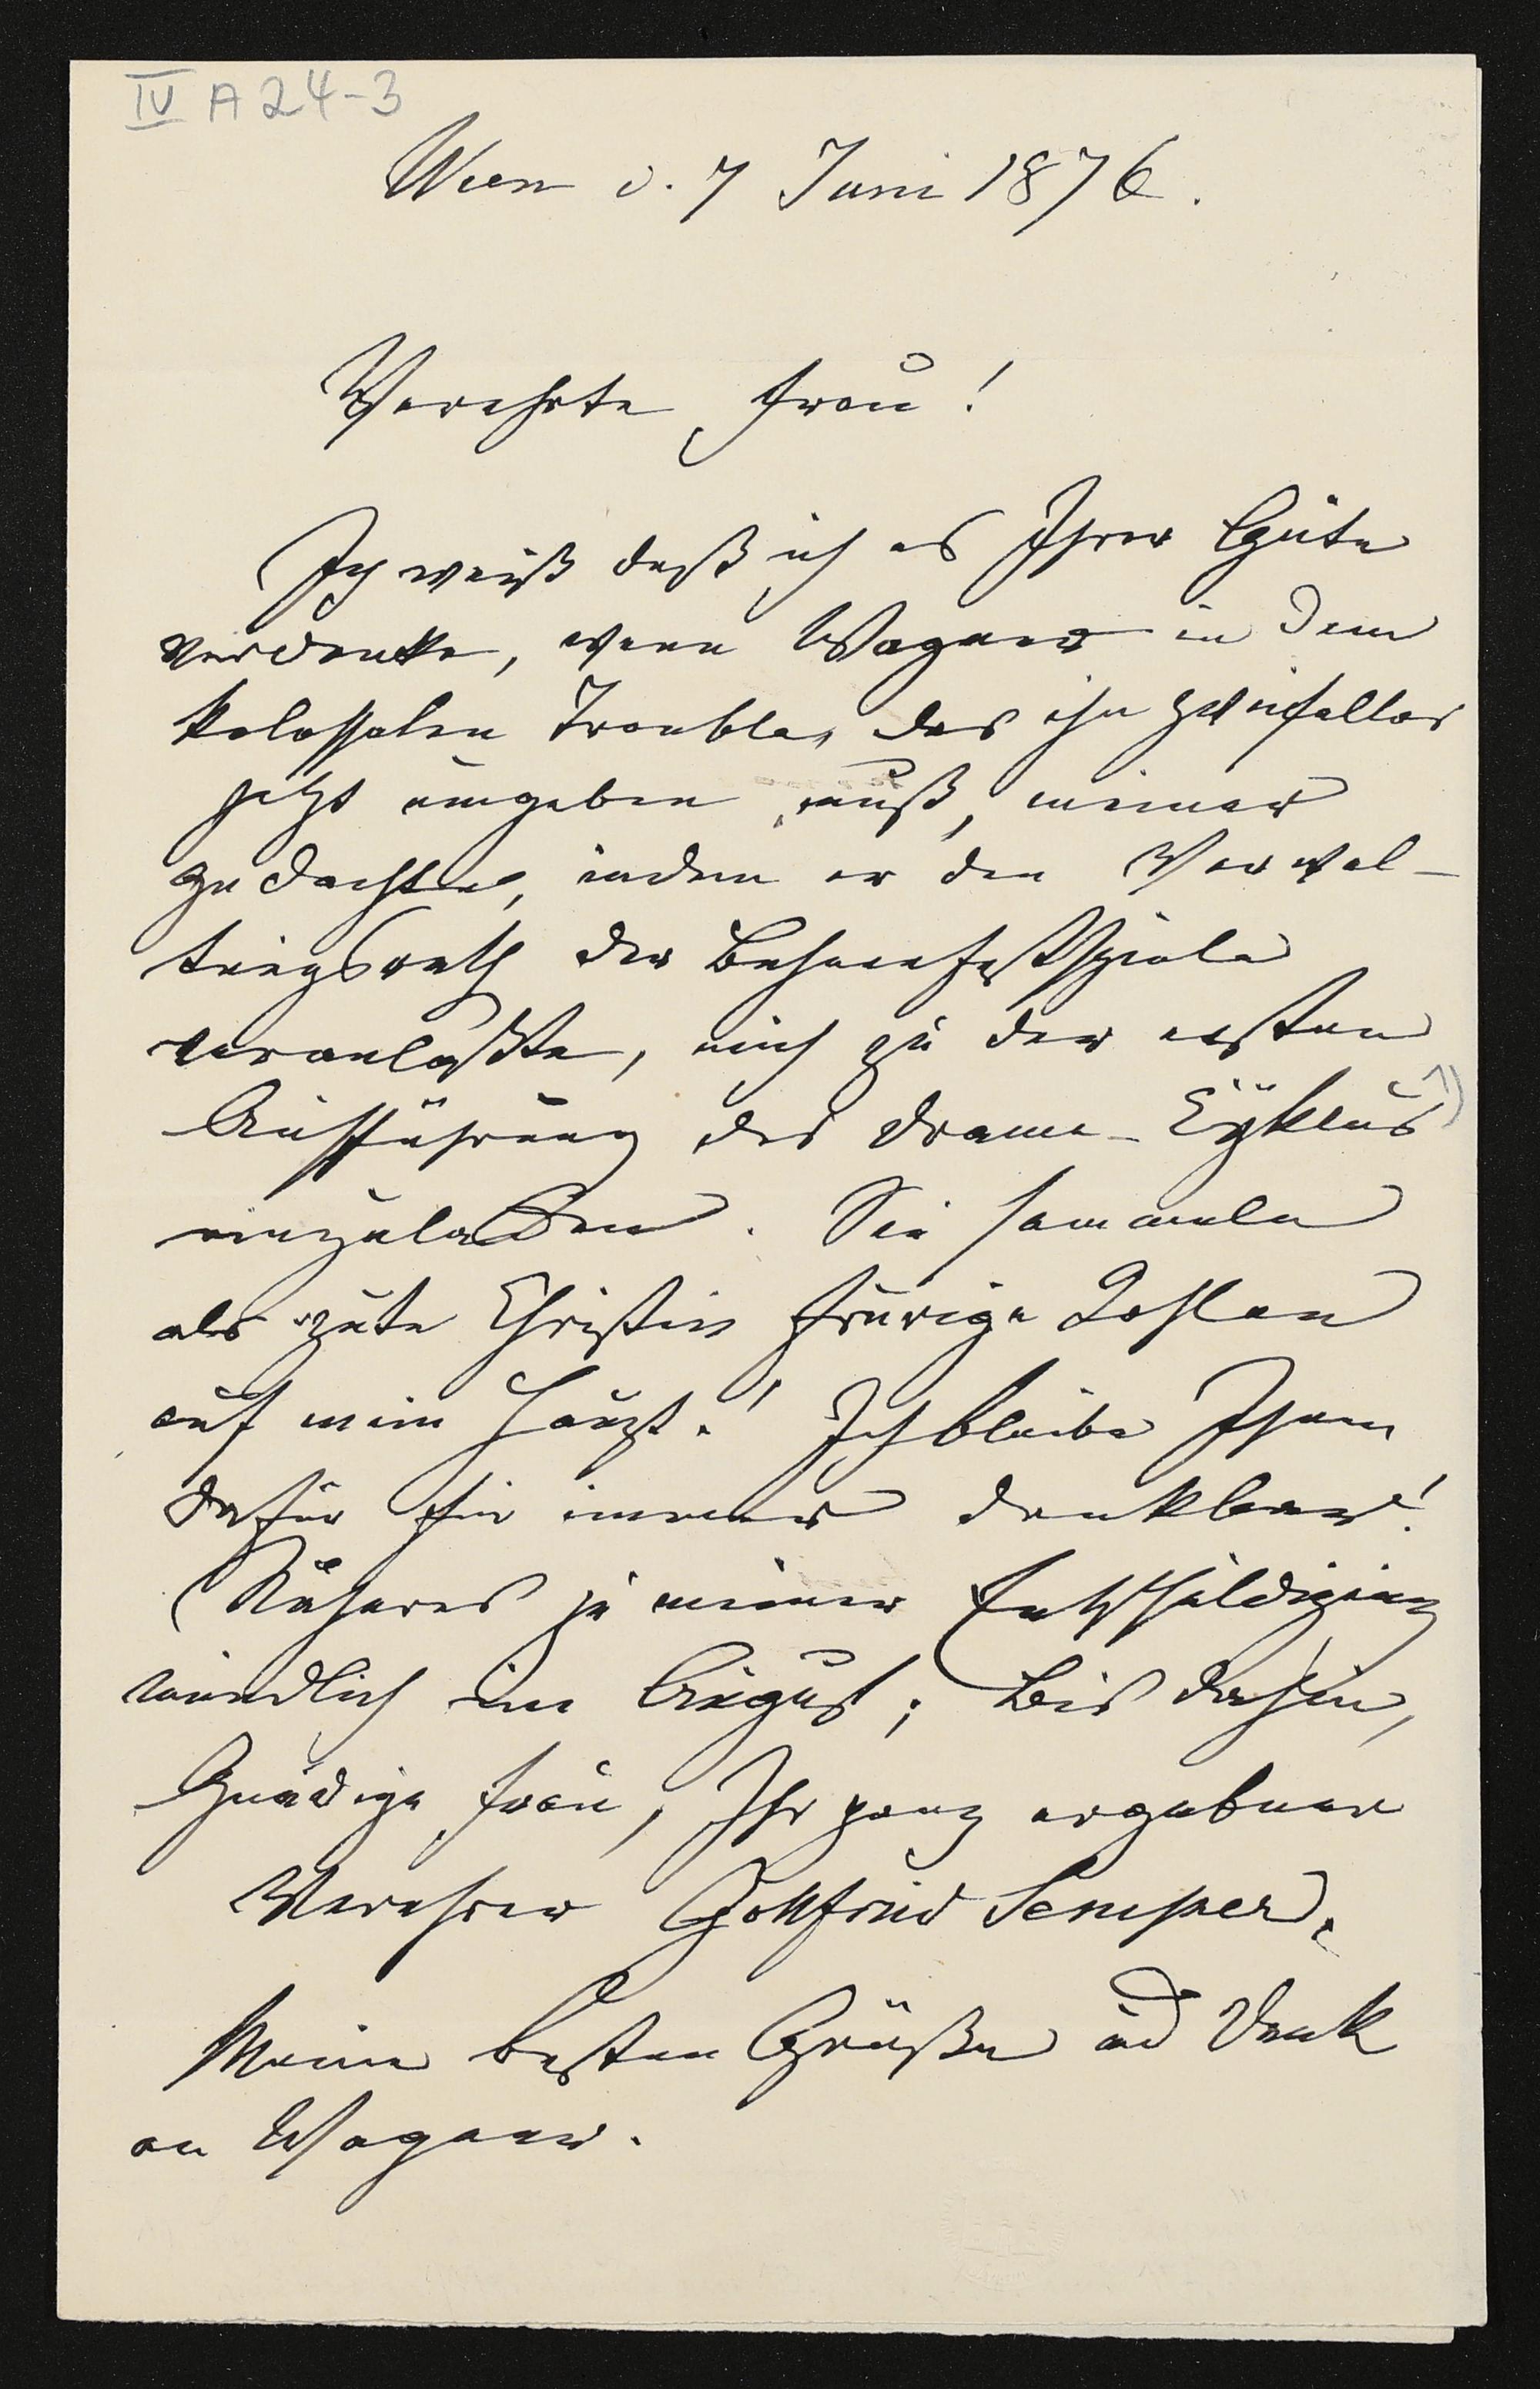 IV A 24-3
Wien d. 7 Juni 1876.
Verehrte Frau!
Ich weiß daß ich es Ihrer Güte
verdanke, wenn Wagner in dem
kolossalen Trouble, der ihn zweifellos
jetzt umgeben muß, meiner
gedachte, indem er den Verwal-
tungsrath der Bühnenfestspiele
veranlaßte, mich zu der ersten
Aufführung des Drama-Cyklus 1)
einzuladen. Sie sammeln
als gute Christin feurige Kohlen
auf mein Haupt! Ich bleibe Ihnen
dafür für immer dankbar!
Näheres zu meiner Entschuldigung
mündlich im August; bis dahin,
Gnädige Frau, Ihr ganz ergebener
Verehrer Gottfried Semper.
Meine besten Grüße und Dank
an Wagner.